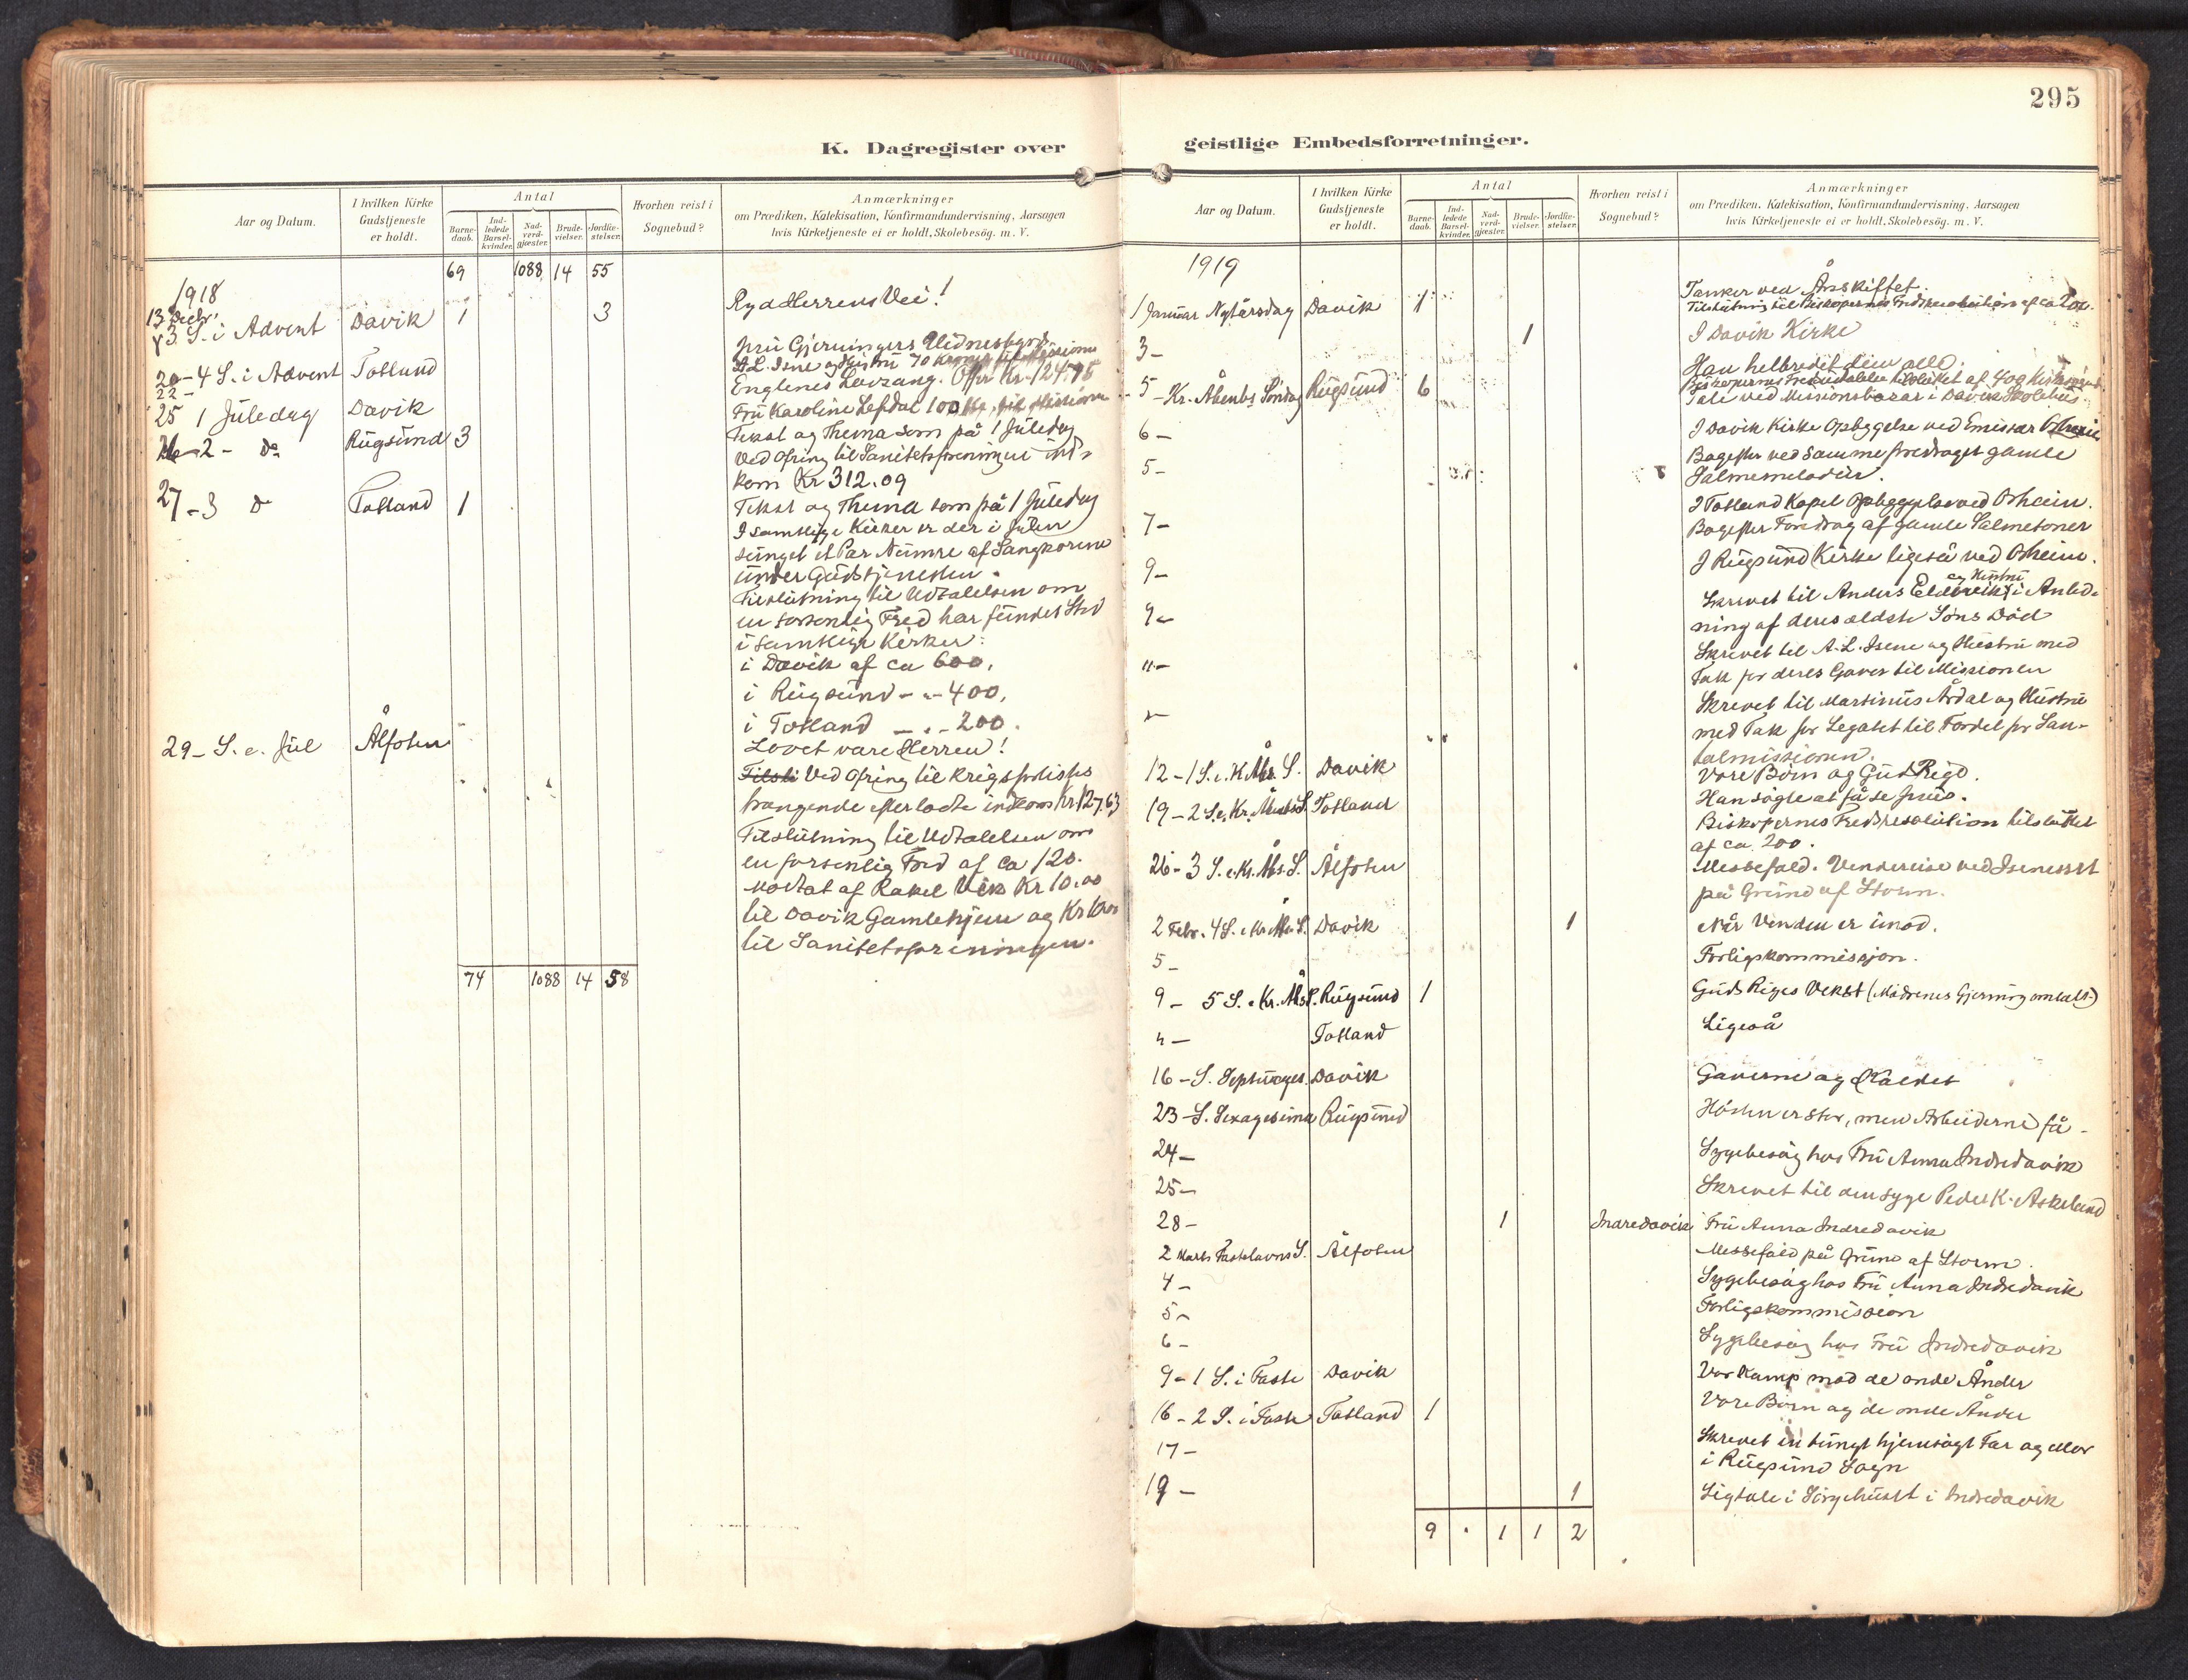 295
K. Dagregister over
geistlige Embedsforretninger.
Aar og Datum.
I hvilken Kirke Gudstjeneste er holdt.
Antal
Barne-daab.
Ind-ledede Barsel-kvinder.
Nad-verd-gjæster.
Brude-vielser.
Jordfæ-stelser.
Hvorhen reist i Sognebud?
Anmærkninger
om Prædiken, Katekisation, Konfirmandundervisning, Aarsagen
hvis Kirketjeneste ei er holdt, Skolebesøg. m. V.
69 1088 14 55
1918
13 Decbr.
3 S. i Advent Davik 1 3 Ryd Herrens Vei!
20 - 4 S. i Advent Totland
22 -
25 1 Juledag Davik Englenes Lovsang. Offer Kr. 124.75
Fru Karoline Lefdal 100 Kr. til Missionen
26 - 2 - do Rugsund 3 Tekst og Thema som på 1 Juledag
Ved Ofring til Sanitetsforeningen ind-
kom Kr 312.09
27 - 3 do Totland 1 Tekst og Thema som på 1 Juledag
I samtlige Kirker er der i Julen
sunget et Par Numre af Sangkorene
under Gudstjenesten.
Tilslutning til Udtalelsen om
en forsonlig Fred har fundet Sted
i samtlige Kirker:
i Davik af ca 600,
i Rugsund - " - 400,
i Totland - " - 200.
29 - S. e. Jul Ålfoten Lovet være Herren!
Ved Ofring til Krigsforlistes
trængende efterladte indkom Kr. 127,63
Tilslutning til Udtalelsen om
en forsonlig Fred af ca 120.
Modtat af Rakel Vik Kr 10.00
til Davik Gamlehjem og Kr
til Sanitetsforeningen.
74 1088 14 58
Aar og Datum.
I hvilken Kirke Gudstjeneste er holdt.
Antal
Barne-daab.
Ind-ledede Barsel-kvinder.
Nad-verd-gjæster.
Brude-vielser.
Jordfæ-stelser.
Hvorhen reist i Sognebud?
Anmærkninger
om Prædiken, Katekisation, Konfirmandundervisning, Aarsagen
hvis Kirketjeneste ei er holdt, Skolebesøg. m. V.
1919
1 Januar Nytårsdag Davik 1 Tanker ved Årsskiftet.
Tilslutning til Biskopernes Fredsresolution af ca 200.
3 - 1 I Davik Kirke
5 - Kr. Åbenb. Søndag Rugsund 6 Han helbredet dem alle.
Tale ved Missionsbazar i Davik Skolehus
6 - I Davik Kirke Opbyggelse ved Emissær Osheim
5 - Bagefter ved samme foredraget gamle
Salmemelodier.
7 - I Totland Kapel Opbyggelse ved Osheim.
Bagefter Foredrag af gamle Salmetoner
9 - I Rugsund Kirke ligeså ved Osheim.
9 - Skrevet til Anders Eldevik og Hustru i Anled-
ning af deres ældste Søns Død
11 - Skrevet til A. L. Isene og Hustru med
Tak for deres Gaver til Missionen
" - Skrevet til Martinus Årdal og Hustru
med Tak for Legatet til Fordel for San-
talmissionen.
12 - 1 S. e. K. Åb. S. Davik Vore Børn og Guds Rige.
19 - 2 S. e. Kr. Åbenb. S. Totland Han søgte at få se Jesus.
Biskopernes Fredsresolution tilsluttet
af ca. 200.
26 - 3 S. e. Kr. Åb. S. Ålfoten Messefald. Vendereise ved Isenesset
på Grund af Storm.
2 Febr. 4 S. e. Kr. Åb. S. Davik 1 Når Vinden er imod.
5 - Forligskommission.
9 - 5 S. e. Kr. Åb. S. Rugsund 1 Guds Riges Vekst (Mødrenes Gjerning omtalt.)
" - Totland Ligeså
16 - S. Septuages. Davik Gaverne og Kaldet
23 - S. Sexagesima Rugsund Høsten er stor, men Arbeiderne få -
24 - Sygebesøg hos Fru Anna Indredavik
25 - Skrevet til den syge Peder K. Askeland
28 - 1 Indredavik Fru Anna Indredavik
2 Marts Fastelavns S. Ålfoten Messefald på Grund af Storm.
4 - Sygebesøg hos Fru Anna Indredavik
5 - Forligskommission
6 - Sygebesøg hos Fru Indredavik
9 - 1 S. i Faste Davik Vor Kamp mod de onde Ånder
16 - 2 S. i Faste Totland 1 Vore Børn og de onde Ånder
17 - Skrevet en tungt hjemsøgt Far og Mor
i Rugsund Sogn
19 - 1 Ligtale i Sørgehuset i Indredavik
9 . 1 1 2